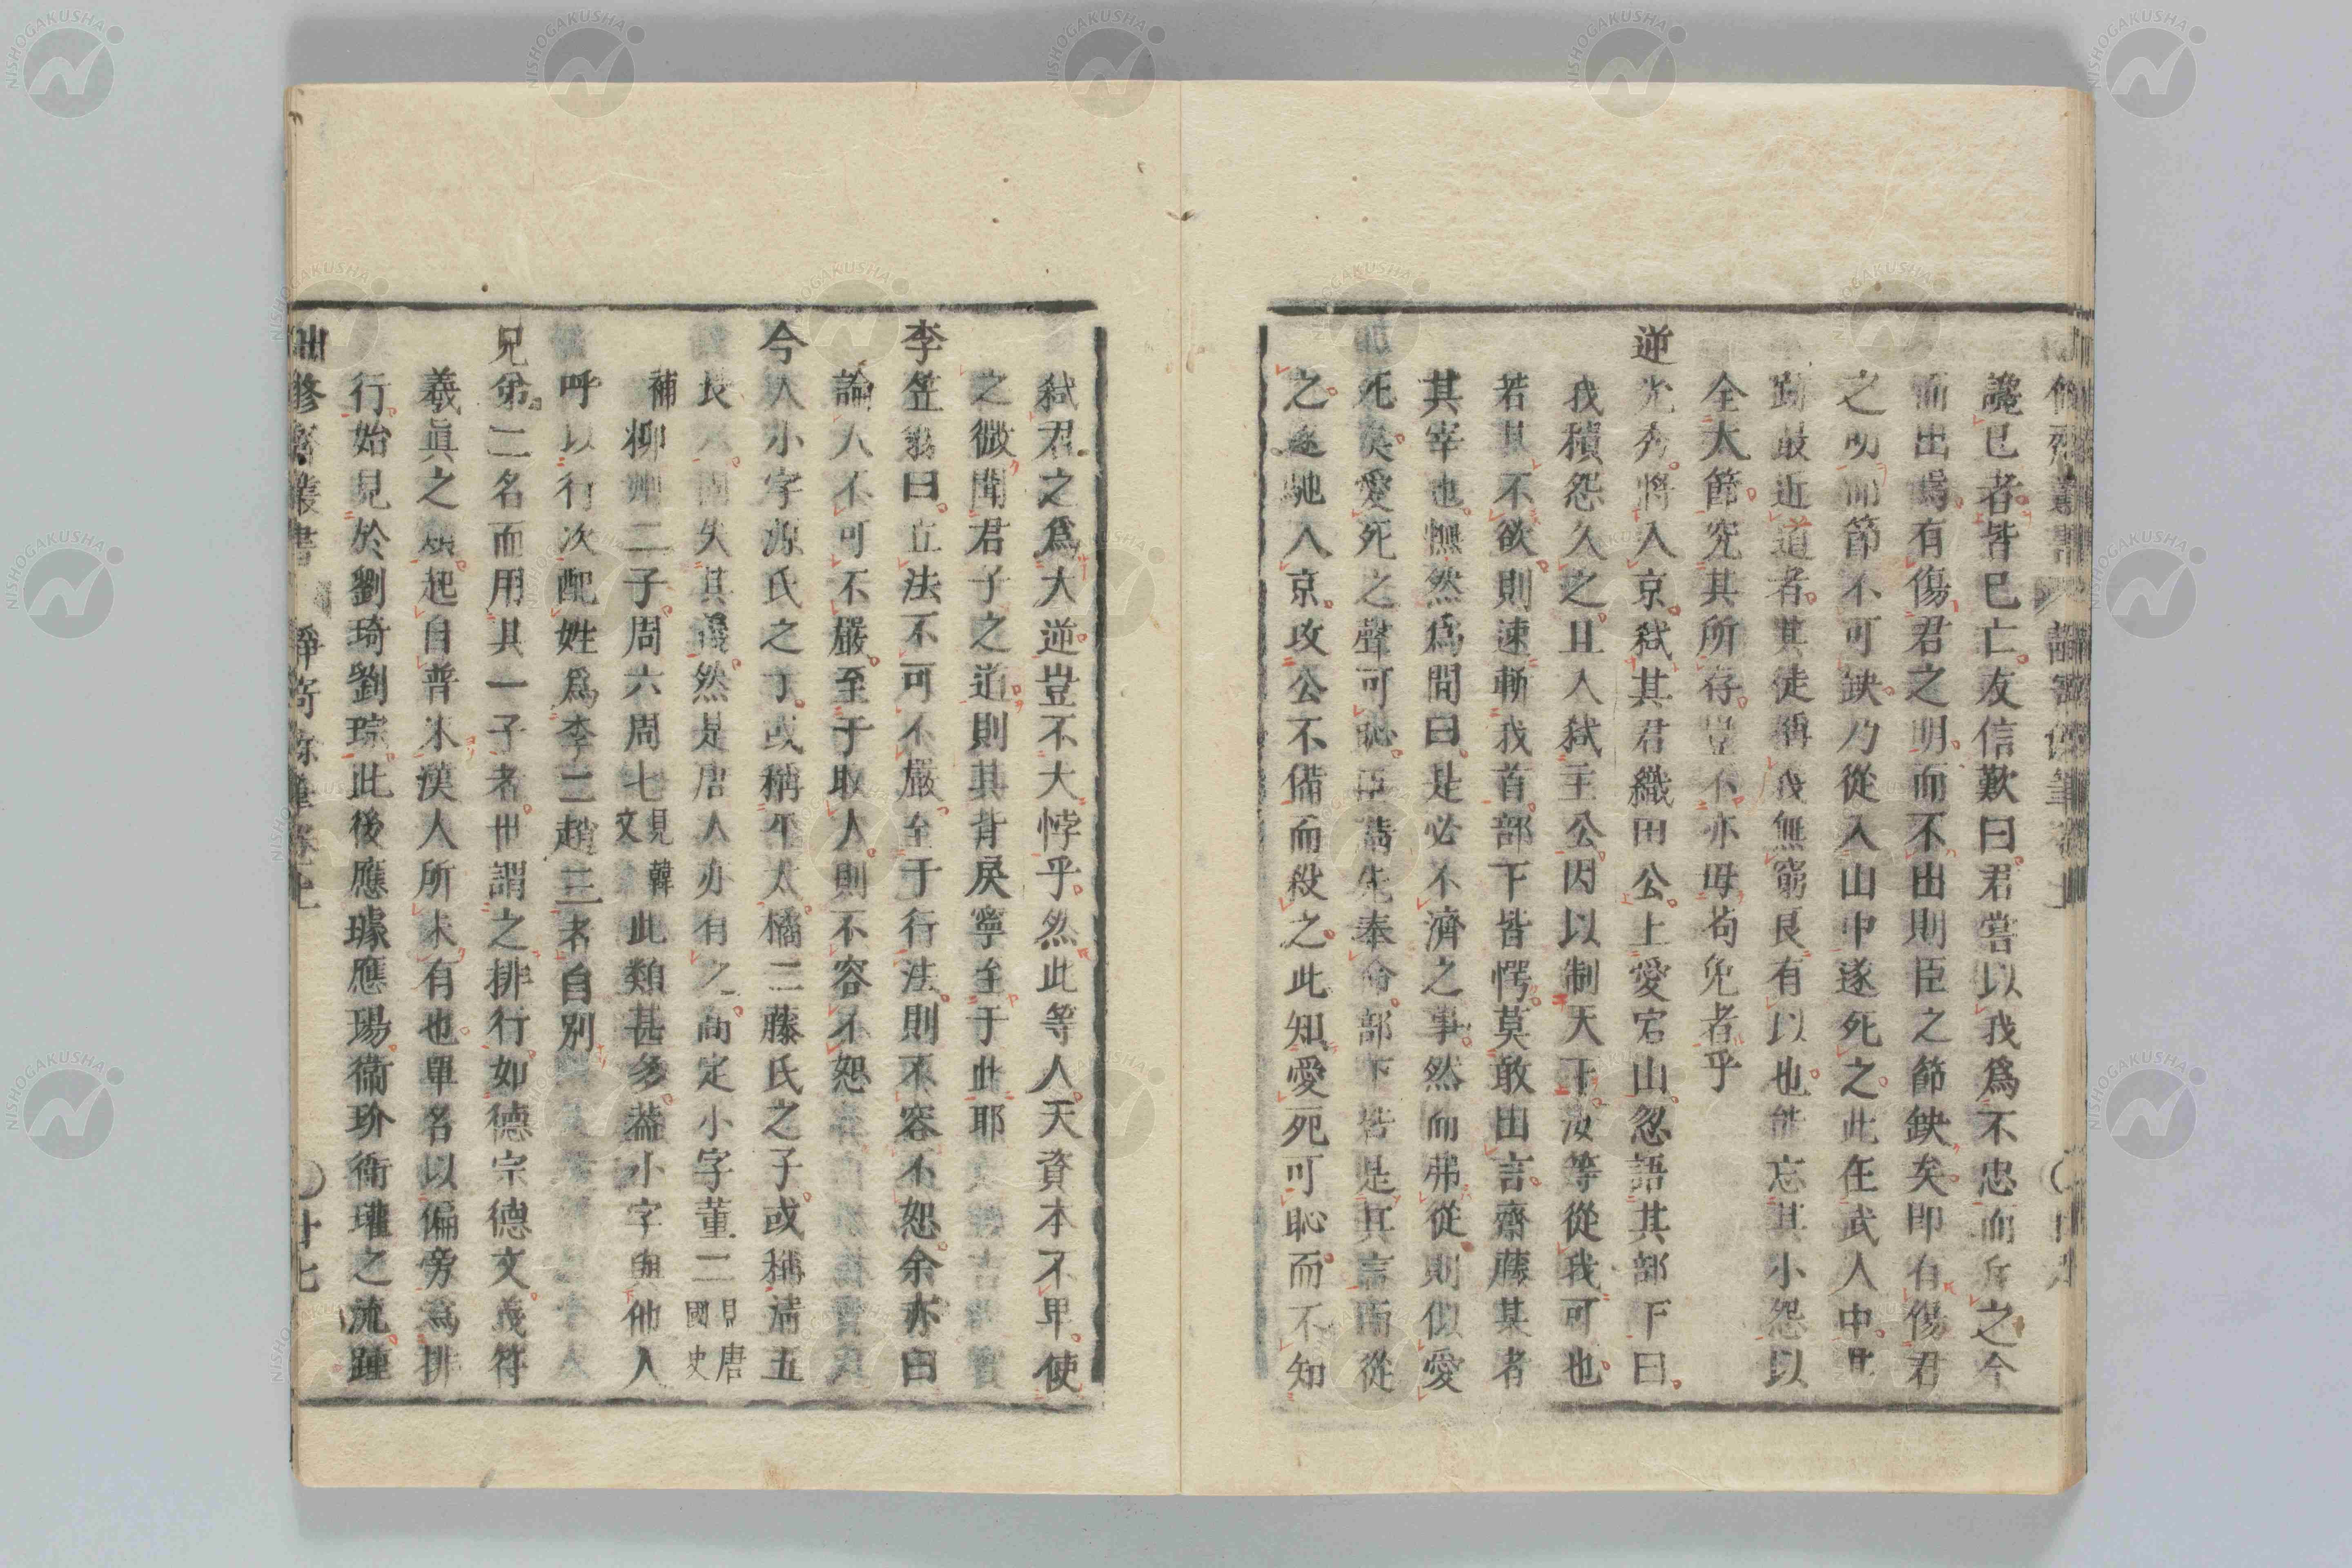 讒已者皆已亡友信歎曰君嘗以我爲不忠而斥之今
而出焉有傷君之明而不出則臣之節缺矣卽有傷君
之明而節不可缺乃從入山中遂死之此在武人中
最近道者其徒稱我無窮良有以也能忘其小怨以
全大節究其所存豈不亦毋苟免者乎
逆光秀將入京弑其君織田公上愛宕山忽語其部下曰
我積怨久之且入弑主公因以制天下汝等從我可也
若其不欲則速斬我首部下皆愕莫敢出言齋藤某者
其宰也憮然爲間曰是必不濟之事然而弗從則似愛
死矣愛死之聲可恥臣請先奉命部下皆是其言而從
之遂馳入京攻公不備而殺之此知愛死可恥而不知
弑君之爲大逆豈不大悖乎然此等人天資本不卑使
之微聞君子之道則其背戾寧至于此耶
李笠翁曰立法不可不嚴至于行法則不容不恕余亦曰
論人不可不嚴至于取人則不容不恕
今人小字源氏之子或稱平太橘三藤氏之子或稱淸五
長 失其義然是唐人亦有之商定小字董二見唐國史
補柳州二子周六周七見韓文此類甚多蓋小字與他人
呼以行次配姓爲李二趙三者自別
兄弟二名而用其一子者世謂之排行如德宗德文義符
義眞之類起自晉末漢人所未有也單名以偏旁爲排
行始見於劉琦劉琮此後應璩應瑒衞玠衞瓘之流踵
修齋叢書 靜寄餘筆卷上 廿七